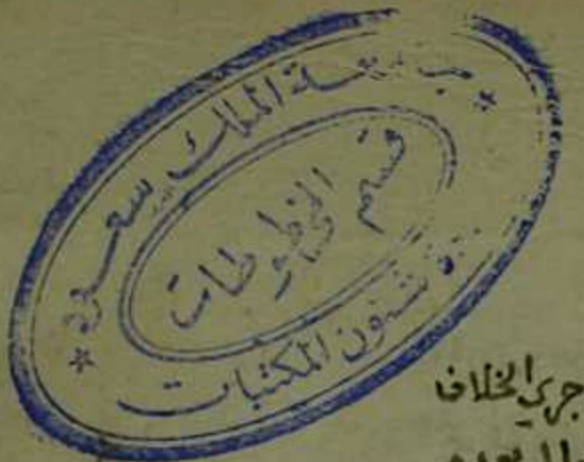 جامعة الملك سعود
قسم المخطوطات
شئون المكتبات
جرى الخلاف